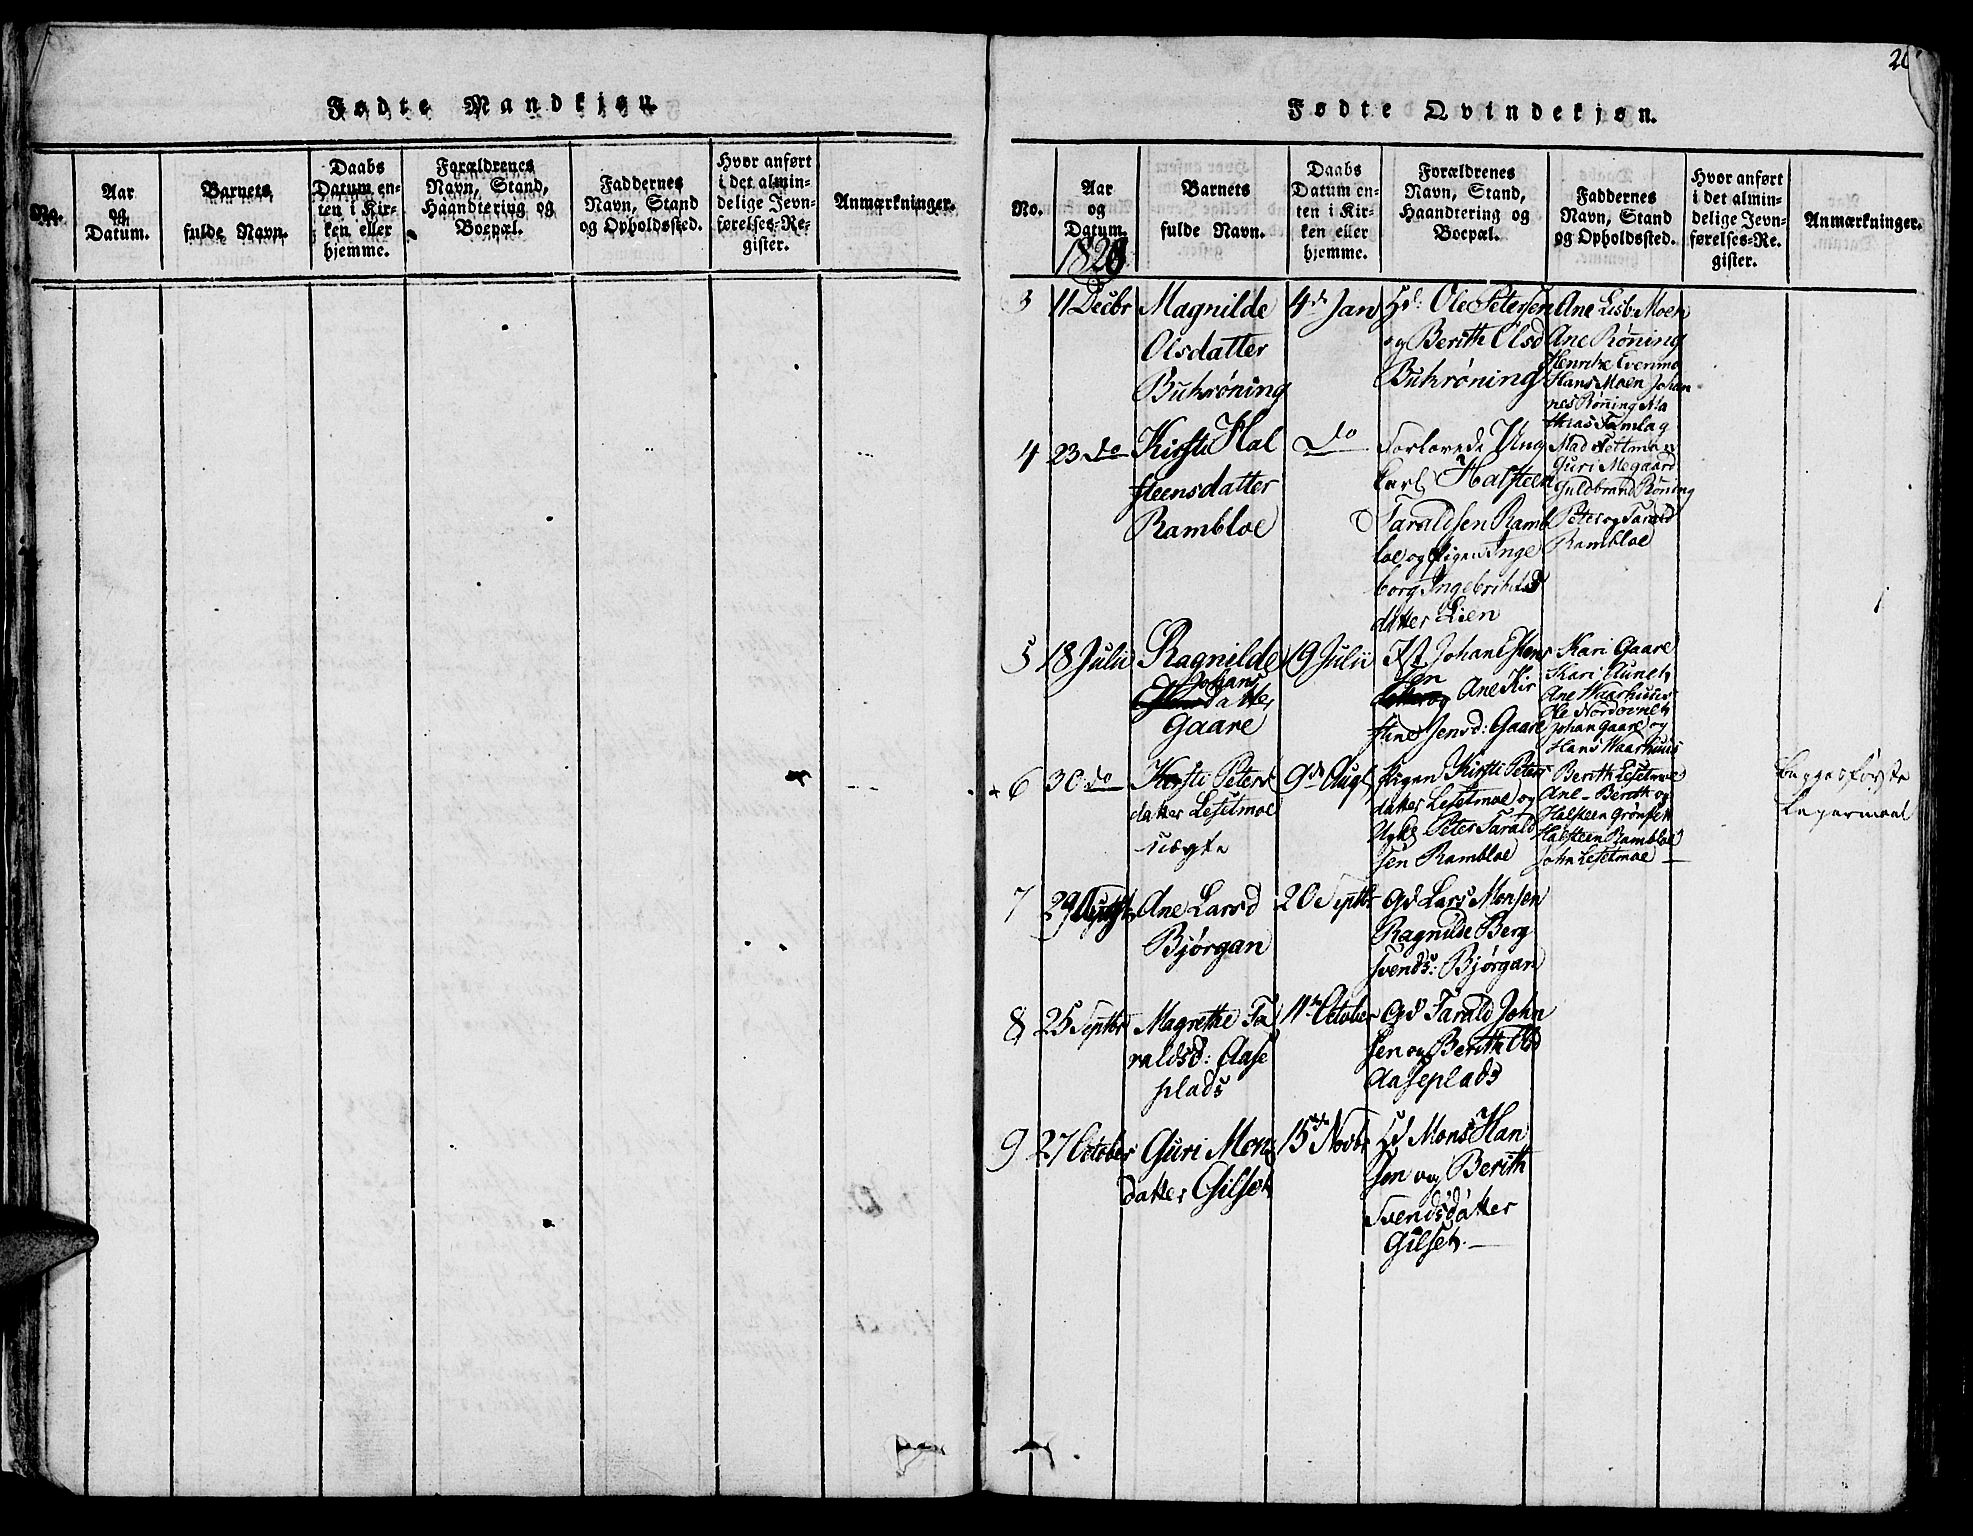 Fødte Mandkjøn.
No.
Aar
og
Datum.
Barnets
fulde Navn.
Daabs
Datum en-
ten i Kir-
ken eller
hjemme.
Forældrenes
Navn, Stand,
Haandtering og
Boepæl.
Faddernes
Navn, Stand
og Opholdssted.
Hvor anført
i det almin-
delige Jevn-
førelses-Re-
gister.
Anmærkninger.
Fødte Qvindekjøn.
No.
Aar
og
Datum.
1820
Barnets
fulde Navn.
Daabs
Datum en-
ten i Kir-
ken eller
hjemme.
Forældrenes
Navn, Stand,
Haandtering og
Boepæl.
Faddernes
Navn, Stand
og Opholdssted.
Hvor anført
i det almin-
delige Jevn-
førelses-Re-
gister.
Anmærkninger.
3
11 Decbr
Magnilde
Olsdatter
Bukrøning
4de Jan
Hd: Ole Petersen
og Berith Olsd
Bukrøning
Ane Lisb: Moen
Ane Røning
Henrike Evenmo
Hans Moen Johan
nes Røning Ma
thias Tamlag
4
23 do
Kirsti Hal
steensdatter
Rambloe
do
Forlovede Ung
karl Halsteen
Taraldsen Ramb
loe og Pigen Inge
borg Ingebrikts
datter Lien
Guri Megaard
Guldbrand Røning
Peter og Tarald
Rambloe
5
18 Julii
Ragnilde
Johans
datter
Gaare
19 Julii
Johan Estens
sen
Ane Kir
stine Jensd: Gaare
Kari Gaare
Kari Aunet
Ane Waarhuus
Ole Nordovnet
Johan Gaare og
Hans Waarhuus
6
30 do
Kirsti Peters
datter Lesetmoe
uægte
9de Aug
Pigen Kirsti Peters
datter Lesetmoe og
Peter Tarald
sen Rambloe
Berith Lesetmoe
Ane Berith og
Halsteen Grønset
Halsteen Rambloe
John Lesetmoe
Begges første
Leyermaal
7
29 August
Ane Larsd
Bjørgan
20 Septbr
Gd Lars Monsen
Ragnilde Berg
svends: Bjørgan
8
25 Septbr
Magrethe Ta
raldsd: Aase
plads
11te October
Gd Tarald John
sen og Berith Olsd
Aaseplads
9
27 October
Guri Mons
datter Gilset
15de Novbr
Hd Mons Han
sen og Berith
Svendsdatter
Gilset.